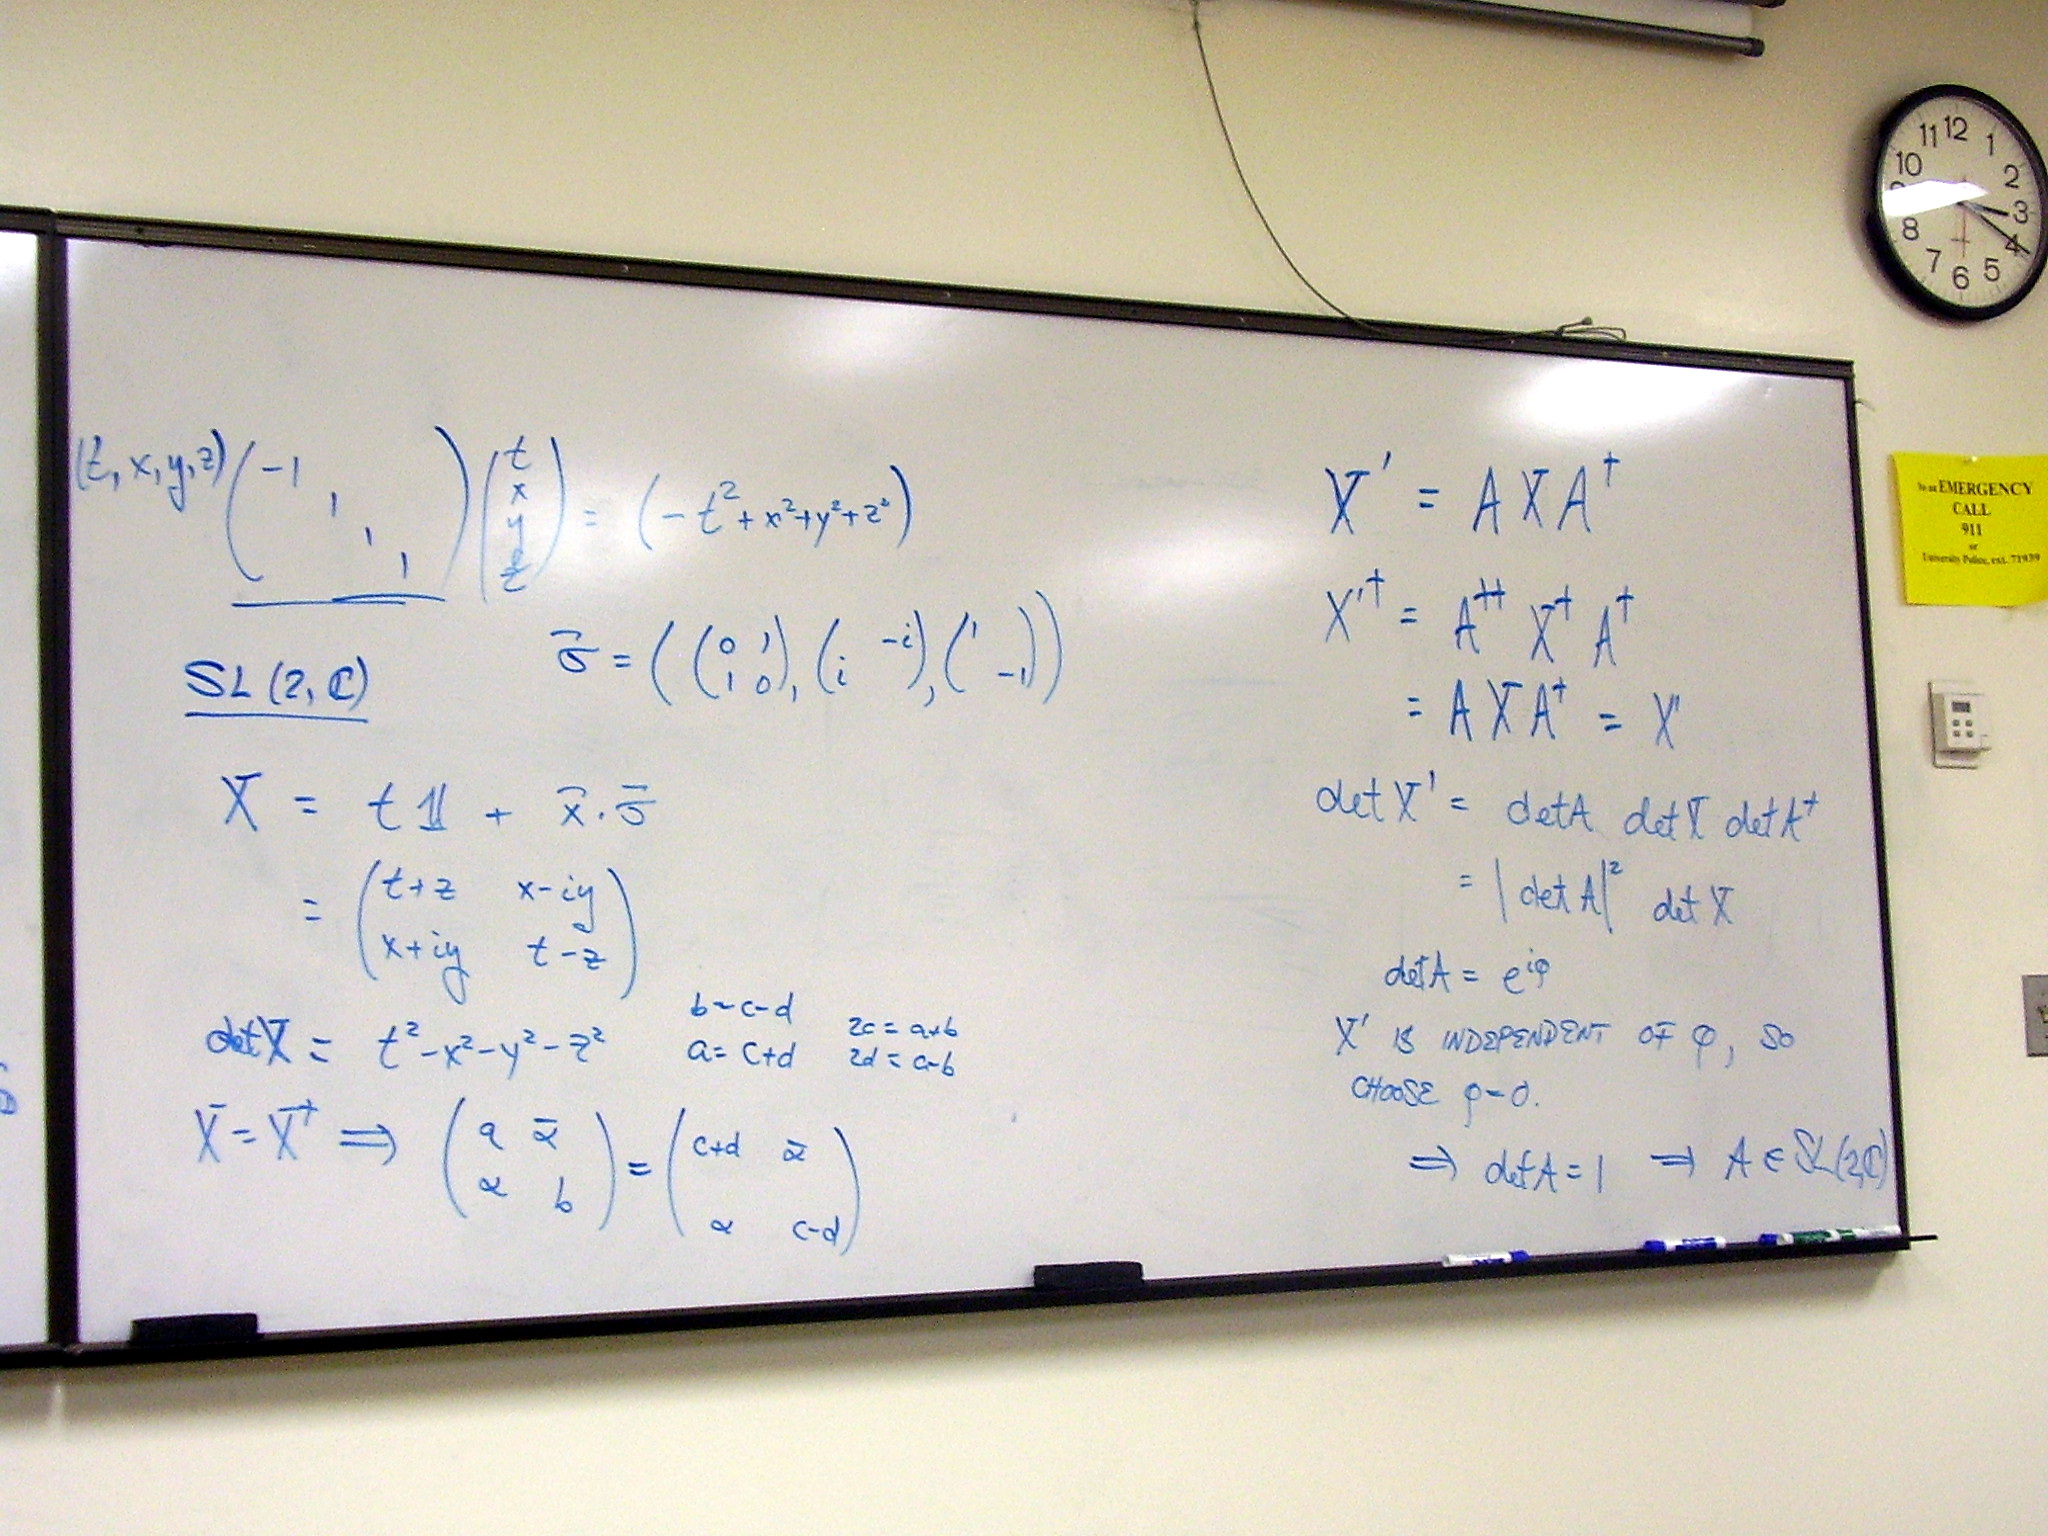 (t, x, y, z) (-1 1 1 1) (t x y z) = (-t² + x² + y² + z²)
SL(2, ℂ)
σ̄ = ((0 1 1 0), (-i i), (1 -1))
X = t𝟙 + x̄·σ̄
= (t+z x-iy
x+iy t-z)
det X = t²-x²-y²-z²
b=c-d
a=c+d
2c=a+b
2d=a-b
X = X† ⟹ (a ᾱ α b) = (c+d ᾱ α c-d)
X' = A X A†
X'† = A†† X† A†
= A X A† = X'
det X' = det A det X det A†
= |det A|² det X
det A = e^{iφ}
X' IS INDEPENDENT OF φ, SO
CHOOSE φ=0.
⟹ det A = 1 ⟹ A ∈ SL(2,ℂ)
11 12 1
10 2
3
8 4
7 6 5
In an EMERGENCY
CALL
911
or
University Police, ext. 71939